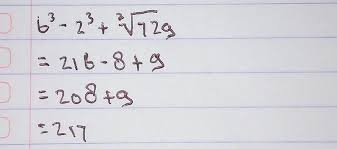 6³ - 2³ + ³√729
= 216 - 8 + 9
= 208 + 9
= 217